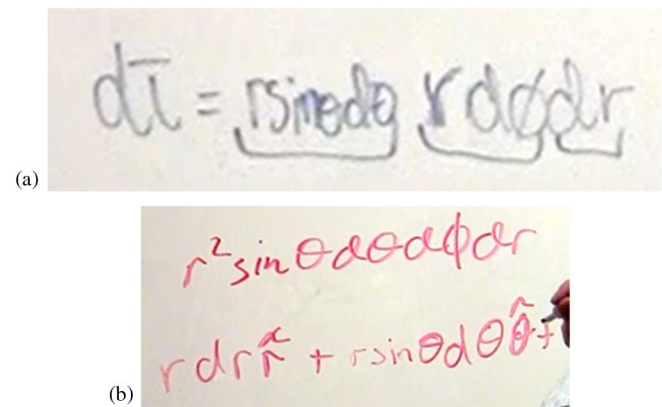 dτ = r sinθdθ r dϕ dr
(a)
r² sin θ dθ dϕ dr
r dr r̂ + r sinθ dθ θ̂ +
(b)